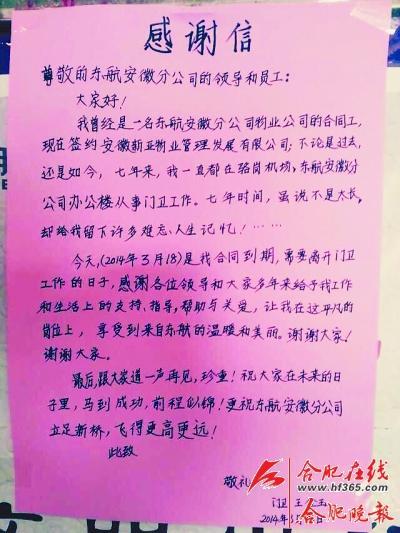 感谢信
尊敬的东航安徽分公司的领导和员工：
大家好！
我曾经是一名东航安徽分公司物业公司的合同工，
现在签约安徽新亚物业管理发展有限公司；不论是过去，
还是如今，七年来，我一直都在骆岗机场，东航安徽分
公司办公楼从事门卫工作。七年时间，虽说不是太长，
却给我留下许多难忘人生记忆！……
今天，(2014年3月18)是我合同到期，需要离开门卫
工作的日子，感谢各位领导和大家多年来给予我工作
和生活上的支持、指导，帮助与关爱，让我在这平凡的
岗位上，享受到来自东航的温暖和美丽。谢谢大家！
谢谢大家。
最后，跟大家道一声再见，珍重！祝大家在未来的日
子里，马到成功，前程似锦！更祝东航安徽分公司
立足新桥，飞得更高更远！
此致
敬礼
门卫 王
2014年3月
合肥在线
www.hf365.com
合肥晚报